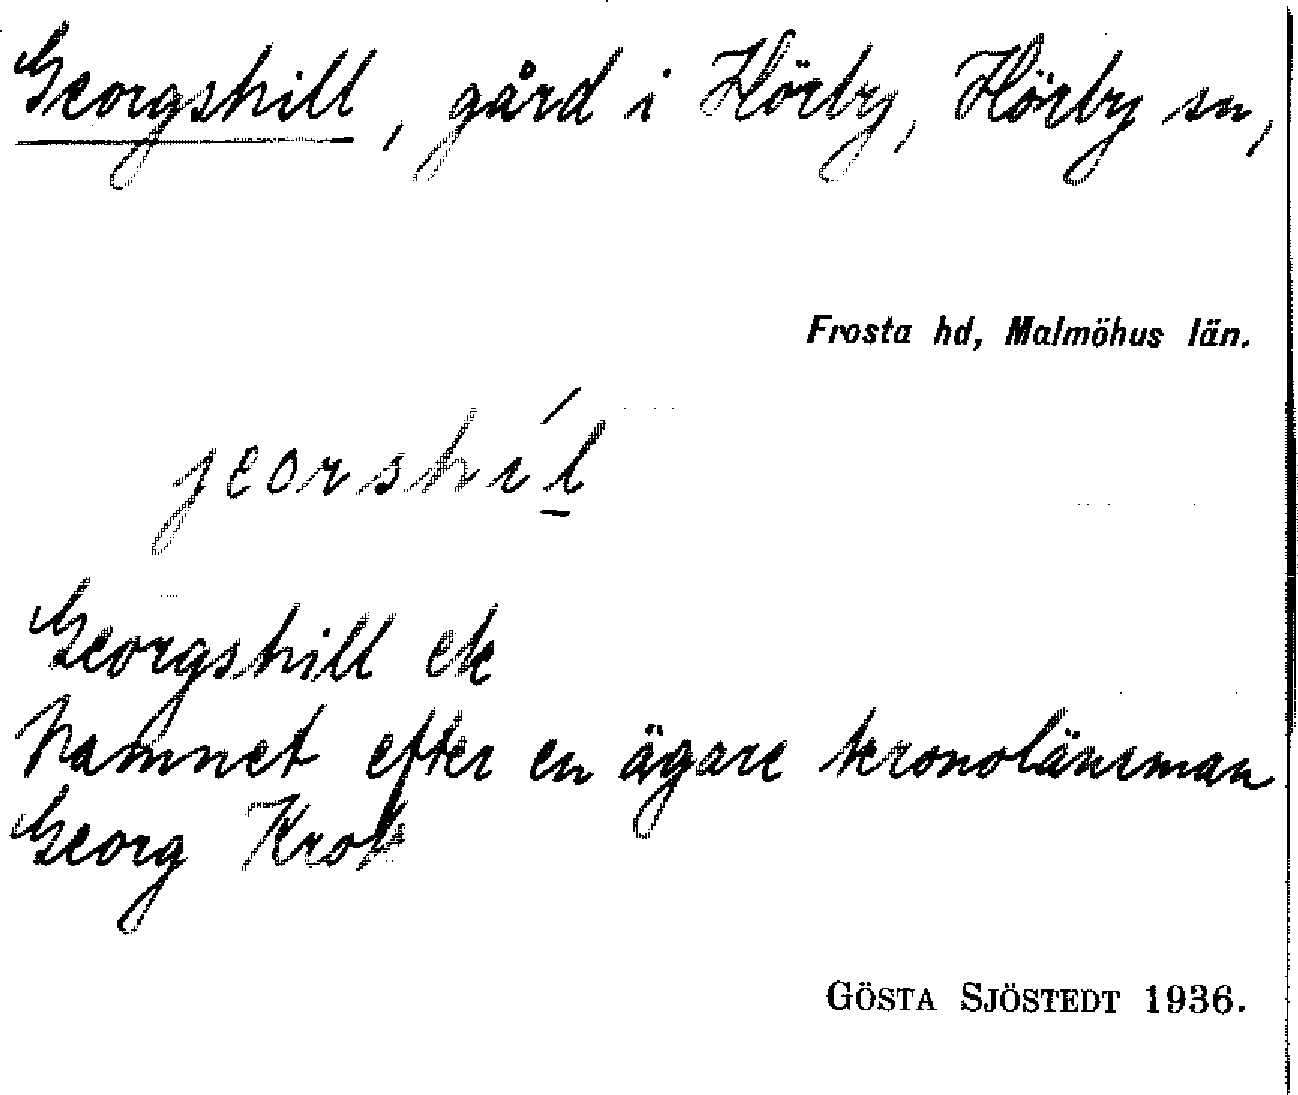 Georgshill, gård i Hörby, Hörby sn,
Frosta hd, Malmöhus län.
jeorshíl̲
Georgshill ek
Namnet efter en ägare kronolänsman
Georg Krok
GÖSTA SJÖSTEDT 1936.